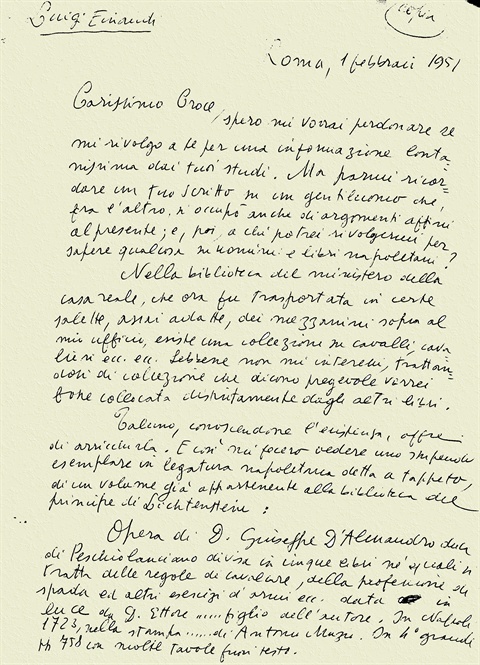 Luigi Einaudi
copia
Roma, 1 febbraio 1951
Carissimo Croce,
spero mi vorrai perdonare se
mi rivolgo a te per una informazione lonta-
nissima dai tuoi studi. Ma parmi ricor-
dare un tuo scritto su un gentiluomo che,
fra l'altro, si occupò anche di argomenti affini
al presente; e, poi, a chi potrei rivolgermi per
sapere qualcosa su uomini e libri napoletani?
Nella biblioteca del ministero della
casa reale, che ora fu trasportata in certe
salette, assai adatte, dei mezzanini sopra al
mio ufficio, esiste una collezione su cavalli, cava-
lieri ecc. ecc. Sebbene non mi interessi, trattan-
dosi di collezione che dicono pregevole vorrei
fosse collocata distintamente dagli altri libri.
Taluno, conoscendone l'esistenza, offre
di arricchirla. E così mi fecero vedere uno stupendo
esemplare in legatura napoletana detta a tappeto,
di un volume già appartenente alla biblioteca del
principe di Lichtenstein:
Opera di D. Giuseppe D'Alessandro duca
di Peschiolanciano divisa in cinque libri ne' quali si
tratta delle regole di cavalcare, della professione di
spada ed altri esercizi d'armi ecc. data in
luce da D. Ettore ...... figlio dell'autore. In Napoli
1723, nella stampa ...... di Antonio Muzio. In 4° grande
pp 758 con molte tavole fuori testo.